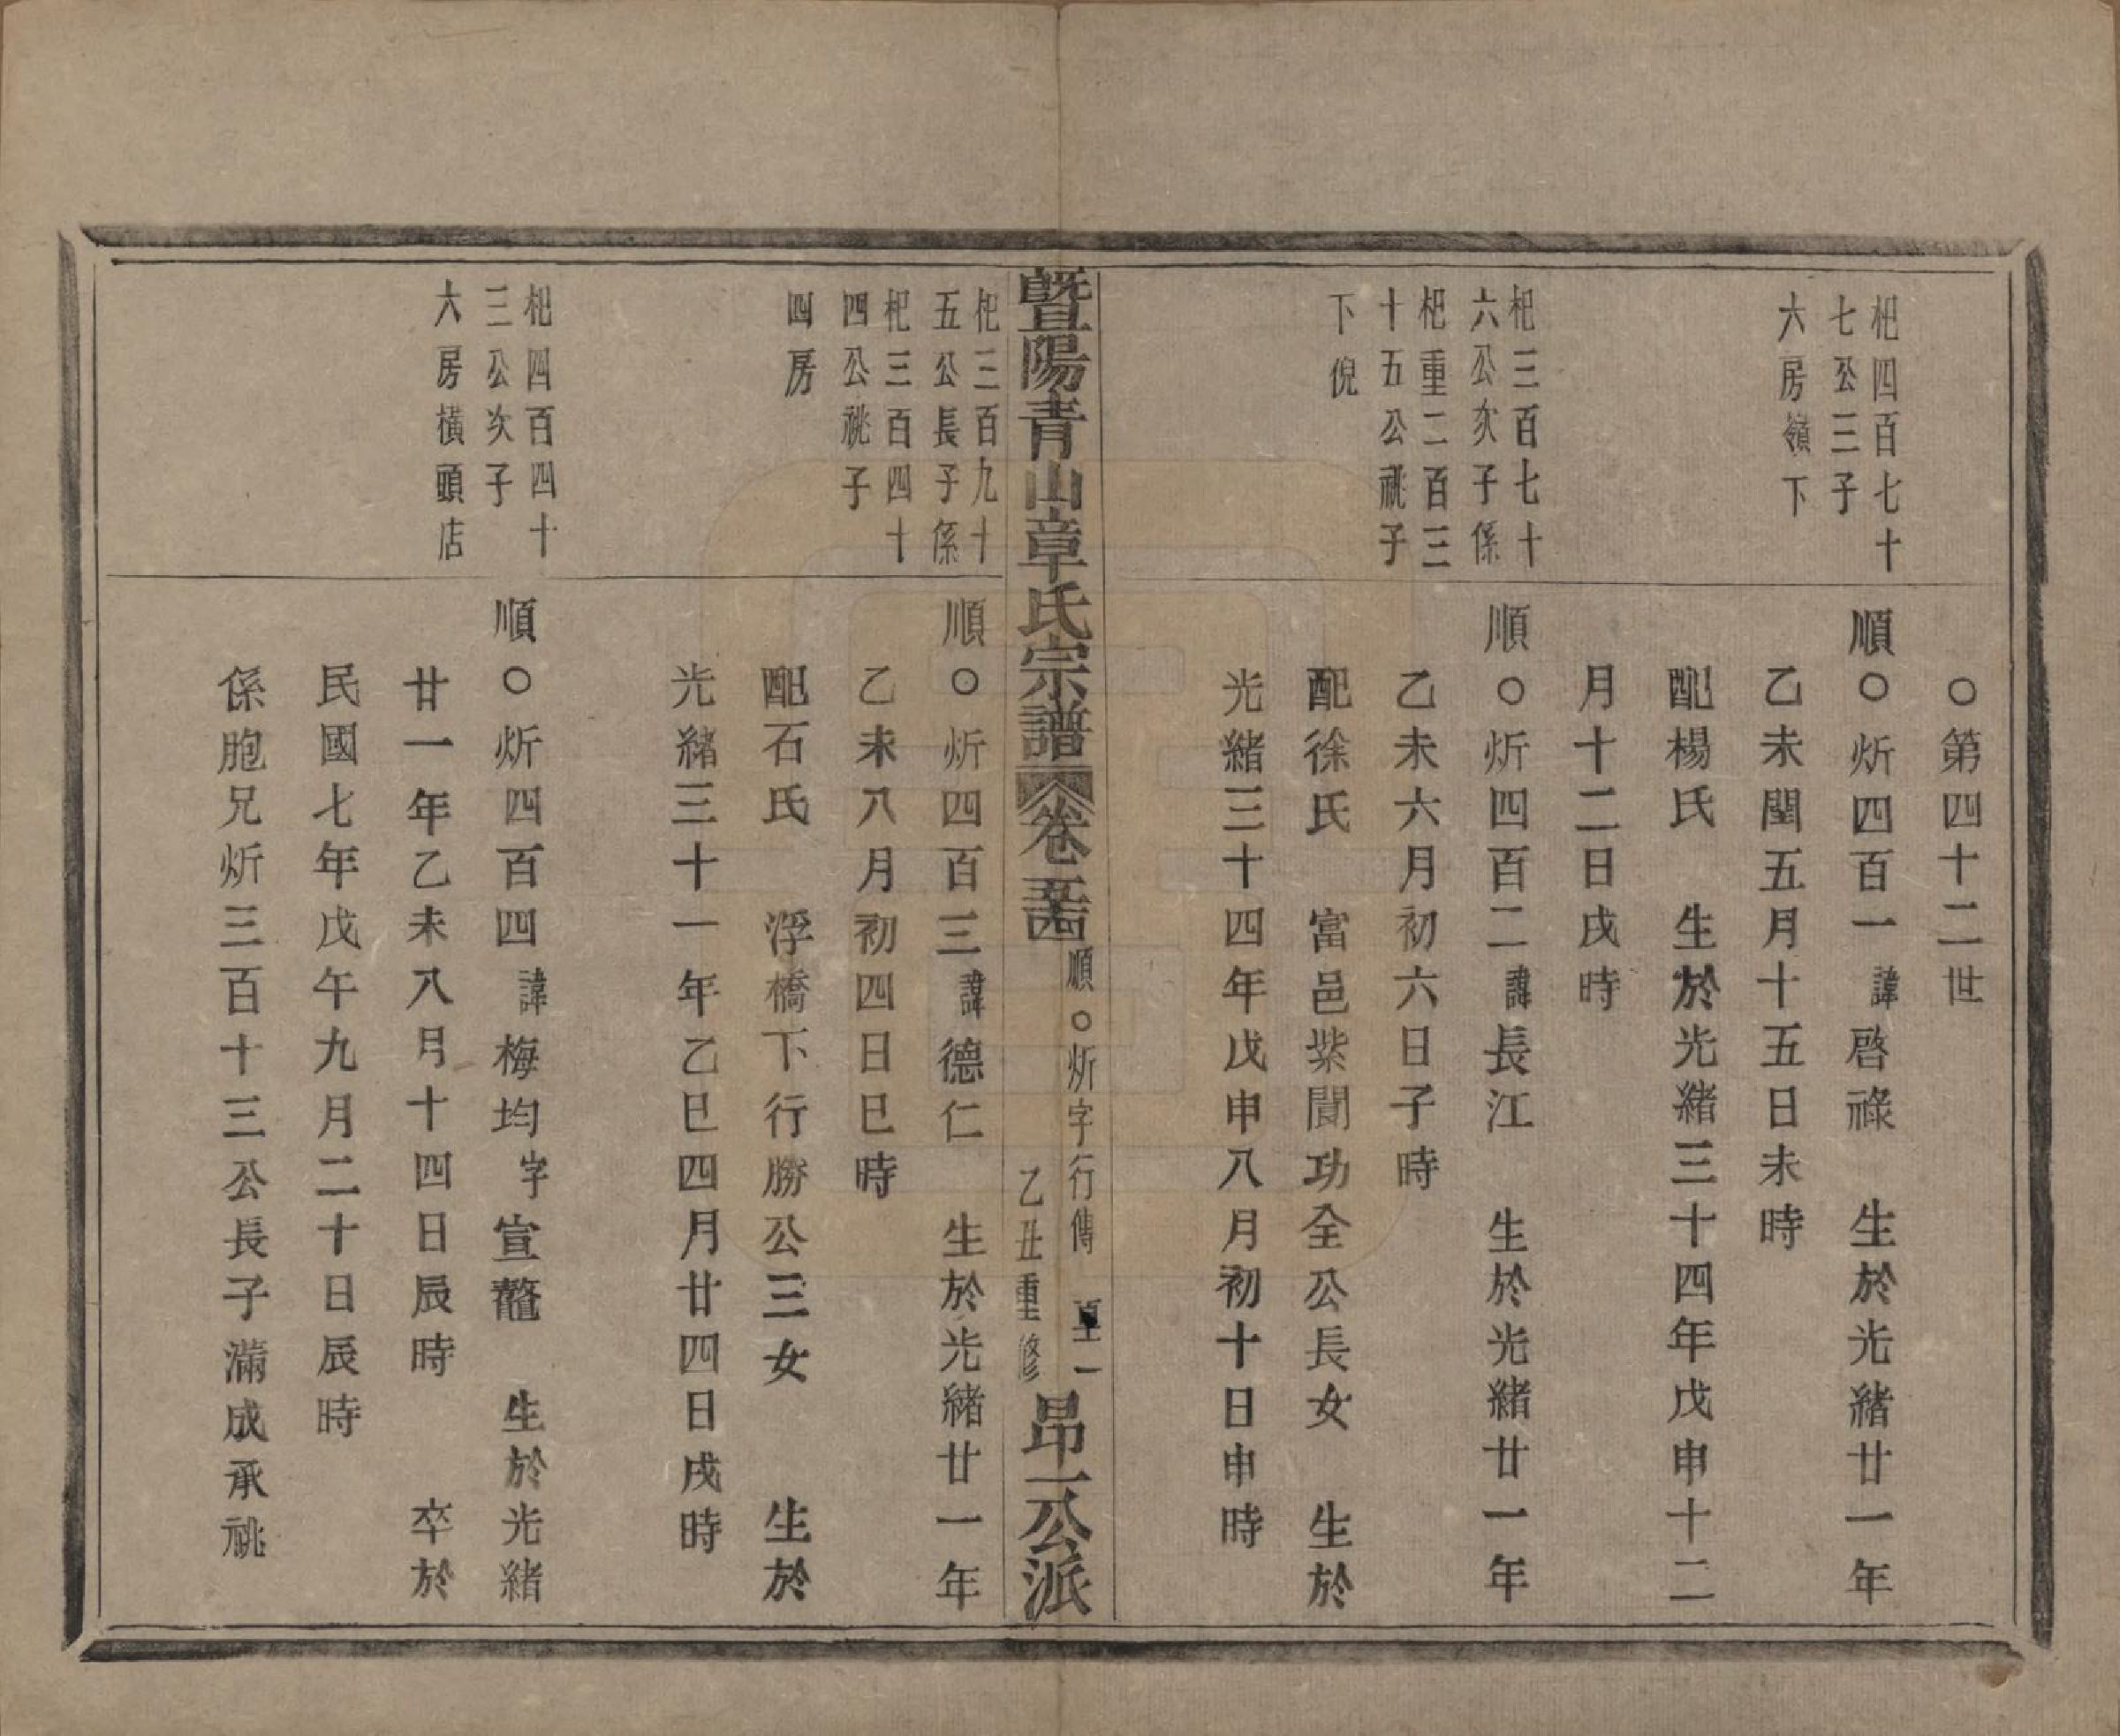 ○第四十二世
杷四百七十
七公三子
六房嶺下
順○炘四百一諱啓祿　生於光緒廿一年
乙未閏五月十五日未時
配楊氏　生於光緒三十四年戊申十二
月十二日戌時
杷三百七十
六公次子係
杷重二百三
十五公祧子
下倪
順○炘四百二諱長江　生於光緒廿一年
乙未六月初六日子時
配徐氏　富邑紫閬功全公長女　生於
光緒三十四年戊申八月初十日申時
暨陽青山章氏宗譜　卷　順○炘字行傳　乙丑重修　昂一公派
杷三百九十
五公長子係
杷三百四十
四公祧子
四房
順○炘四百三諱德仁　生於光緒廿一年
乙未八月初四日巳時
配石氏　浮橋下行勝公三女　生於
光緒三十一年乙巳四月廿四日戌時
杷四百四十
三公次子
六房橫頭店
順○炘四百四諱梅均字宣鼇　生於光緒
廿一年乙未八月十四日辰時　卒於
民國七年戊午九月二十日辰時
係胞兄炘三百十三公長子滿成承祧